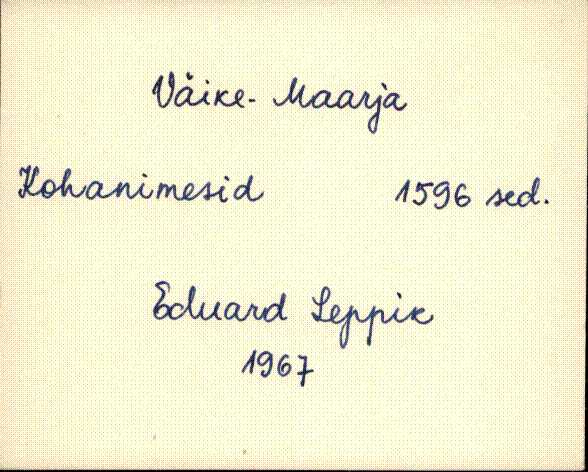 Väike-Maarja
Kohanimesid 1596 sed.
Eduard Leppik
1967